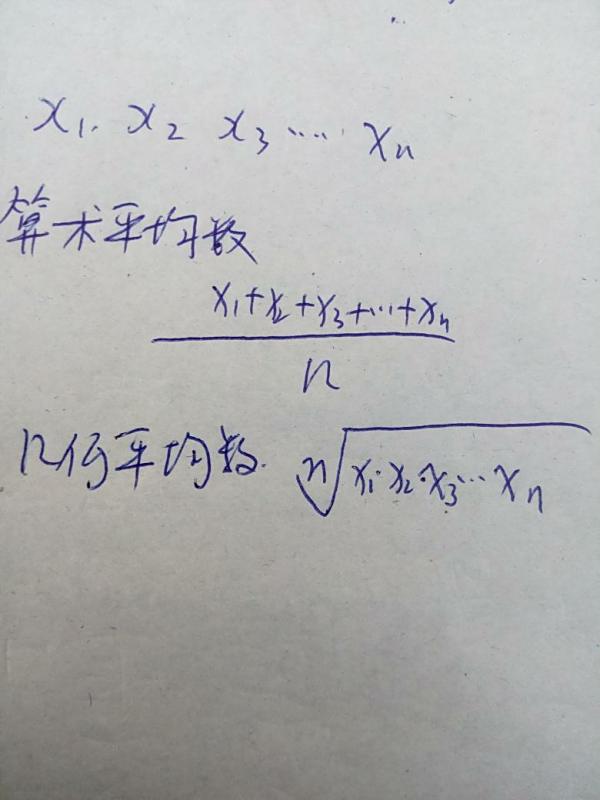 x₁. x₂ x₃ …… xₙ
算术平均数
x₁+x₂+x₃+…+xₙ
n
几何平均数. ⁿ√x₁·x₂·x₃…xₙ